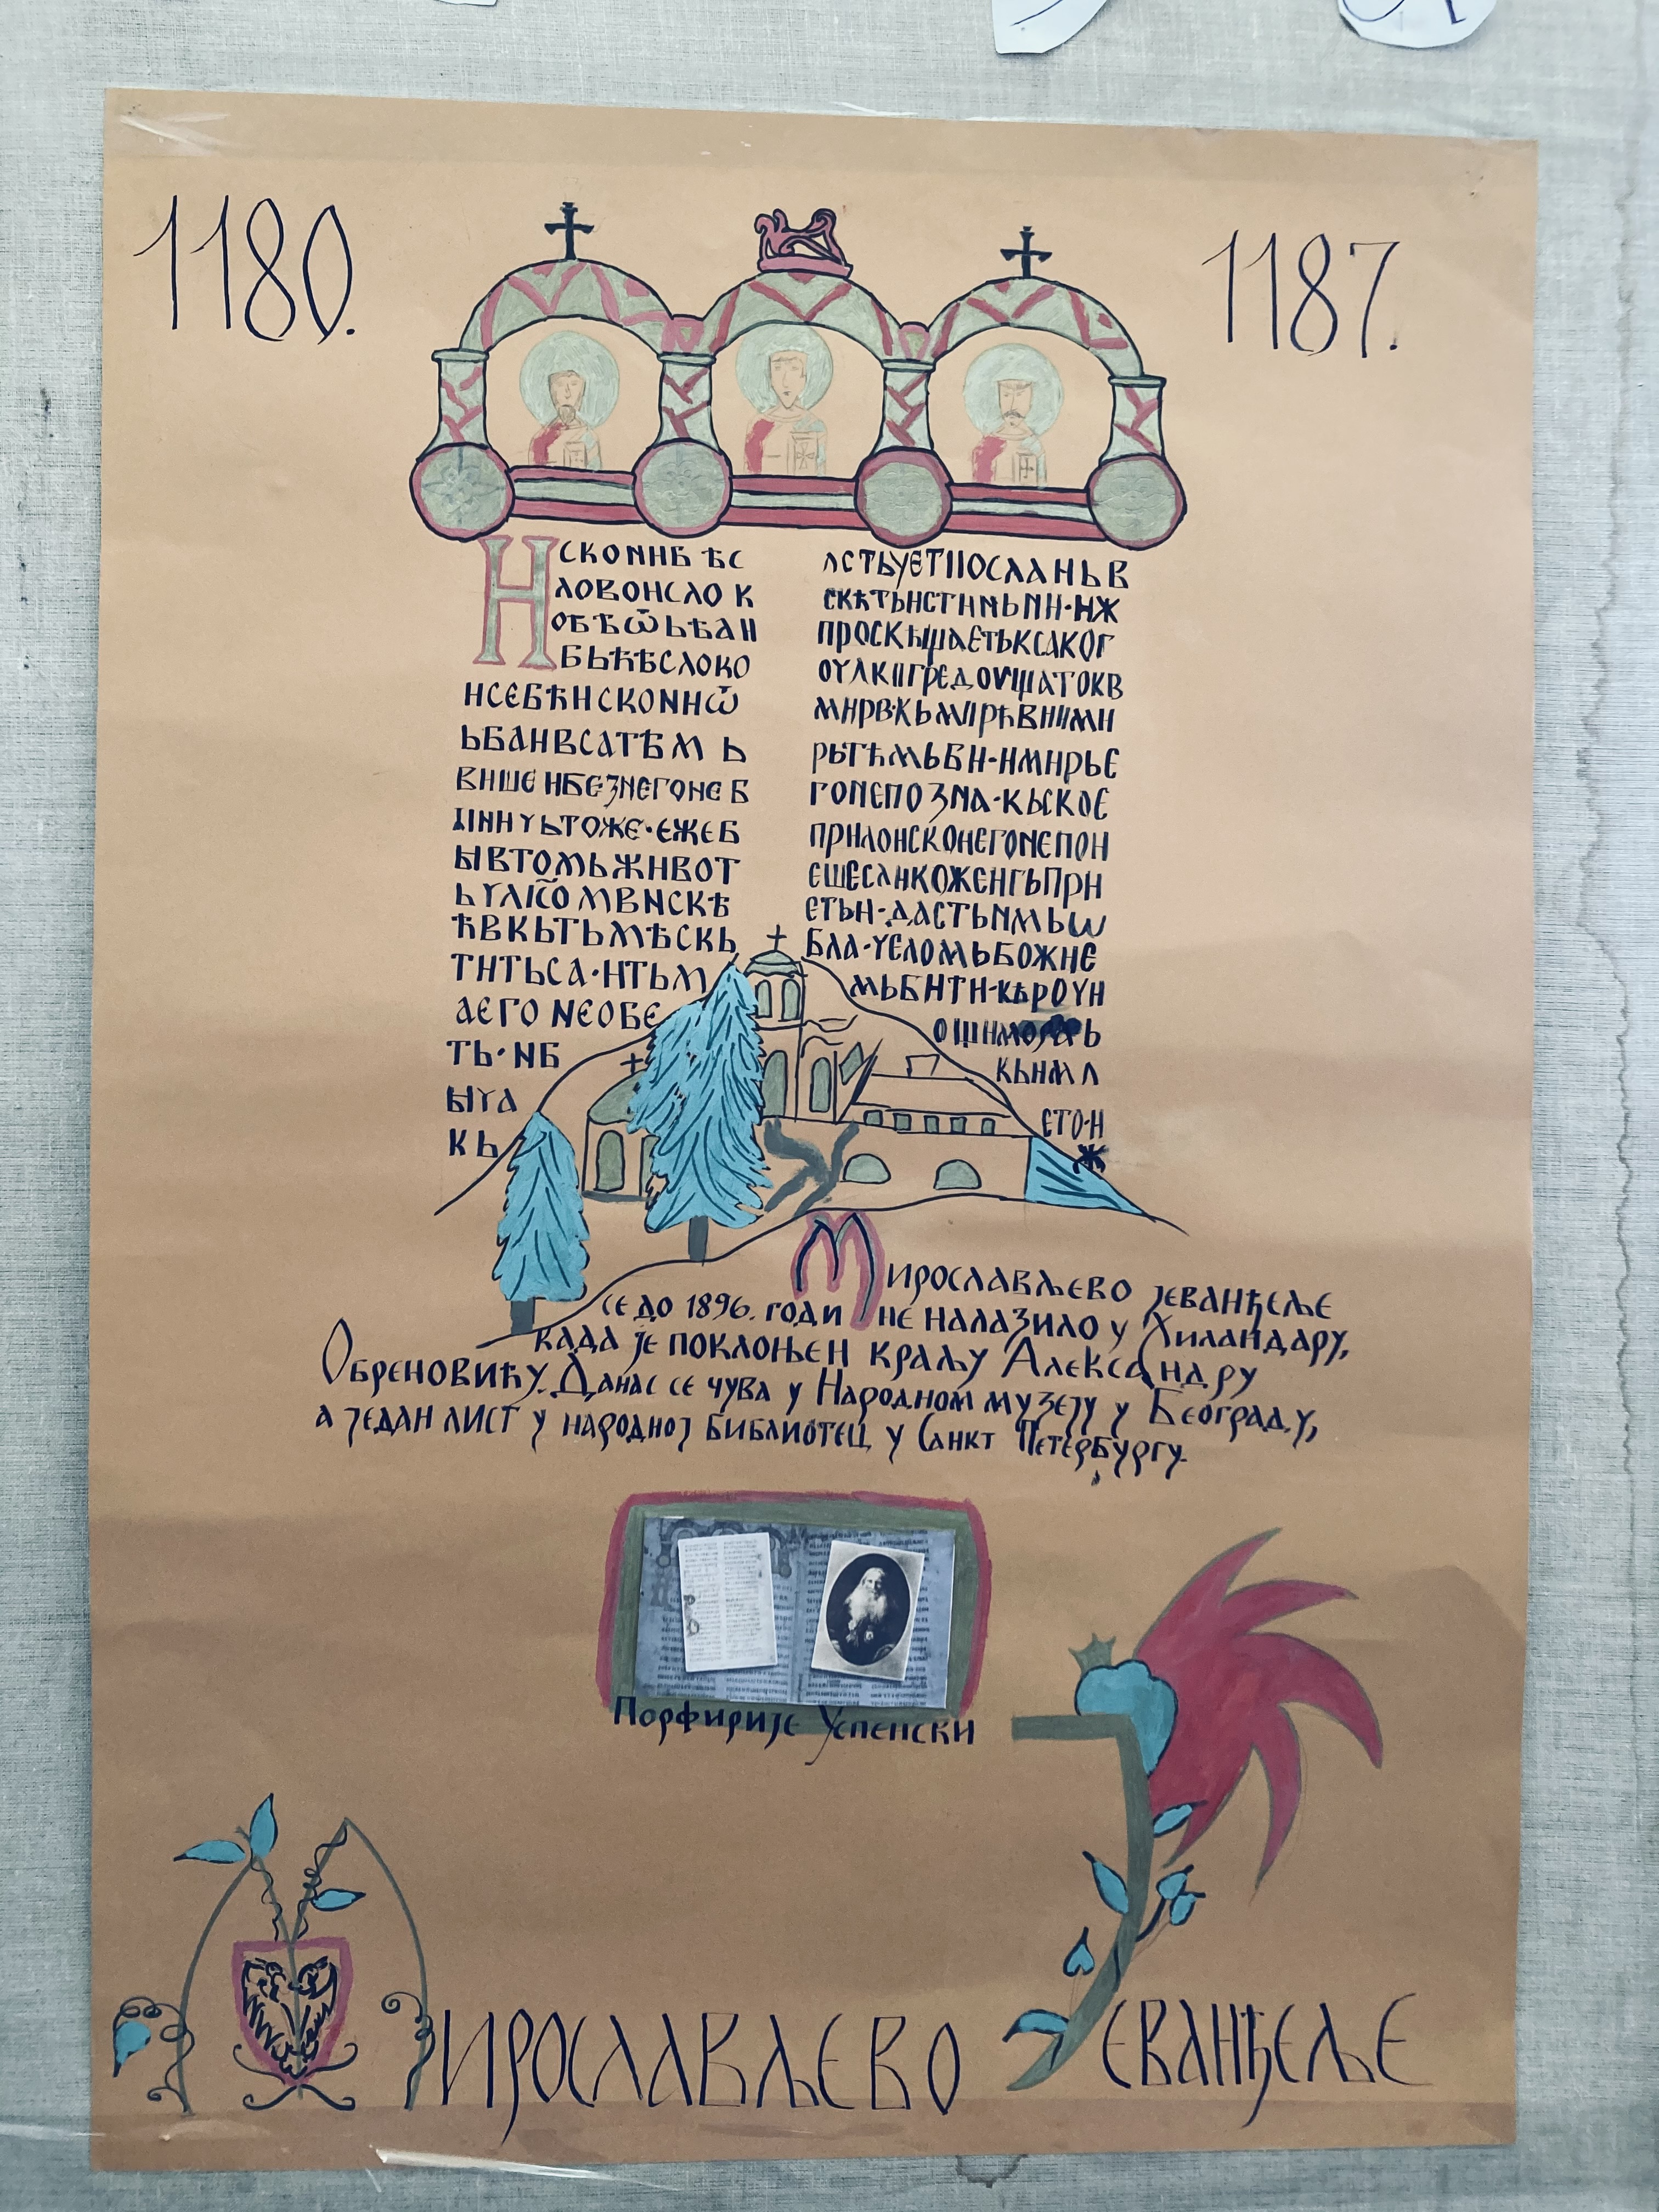 1180.
1187.
НСКОNНБ ѢС
ЛОВОНСЛО К
ОБѢѾЬѢАН
БЬЋѢСЛОКО
НСЄБЋНСКОNНѾ
ЬБАНВСАТѢМ Ь
ВНШЄ НБЄЗNЄГОNЄ Б
ЬТОЖЄ·ЄЖЄБ
ЫВТОМЬЖНВОТ
ЋВКЬТЬМѢСКЬ
ТНТЬСА·НТЬМ
АЄГО NЄОБЄ
ТЬ·NБ
ЫYА
КЬ
ЛСТЬУЄТПОСЛАНЬВ
СКѢТЬНСТНNЬNН·НЖ
ПРОСКѢЩАЄТЬКСАКОГ
РЬТЋМЬБН·НМНРЬЄ
ГОNЄПО ЗNА·КЬСКОЄ
ПРНЛОНСКОНЄГОNЄПОН
ЄШЄСАНКОЖЄНГЬПРН
ЄТЬН·ДАСТЬNМЬѠ
БЛА·YЄЛОМЬБОЖНЄ
МЬБНТН·КѢРОYН
КЬНМЛ
ЄТО·Н
Ж
Мирослављево јеванђеље
се до 1896. годи не налазило у Хиландару,
када је поклоњен краљу Александру
Обреновићу. Данас се чува у Народном музеју у Београду,
а један лист у народној библиотец у Санкт Петербургу.
Порфирије Успенски
Мирослављево Јеванђеље